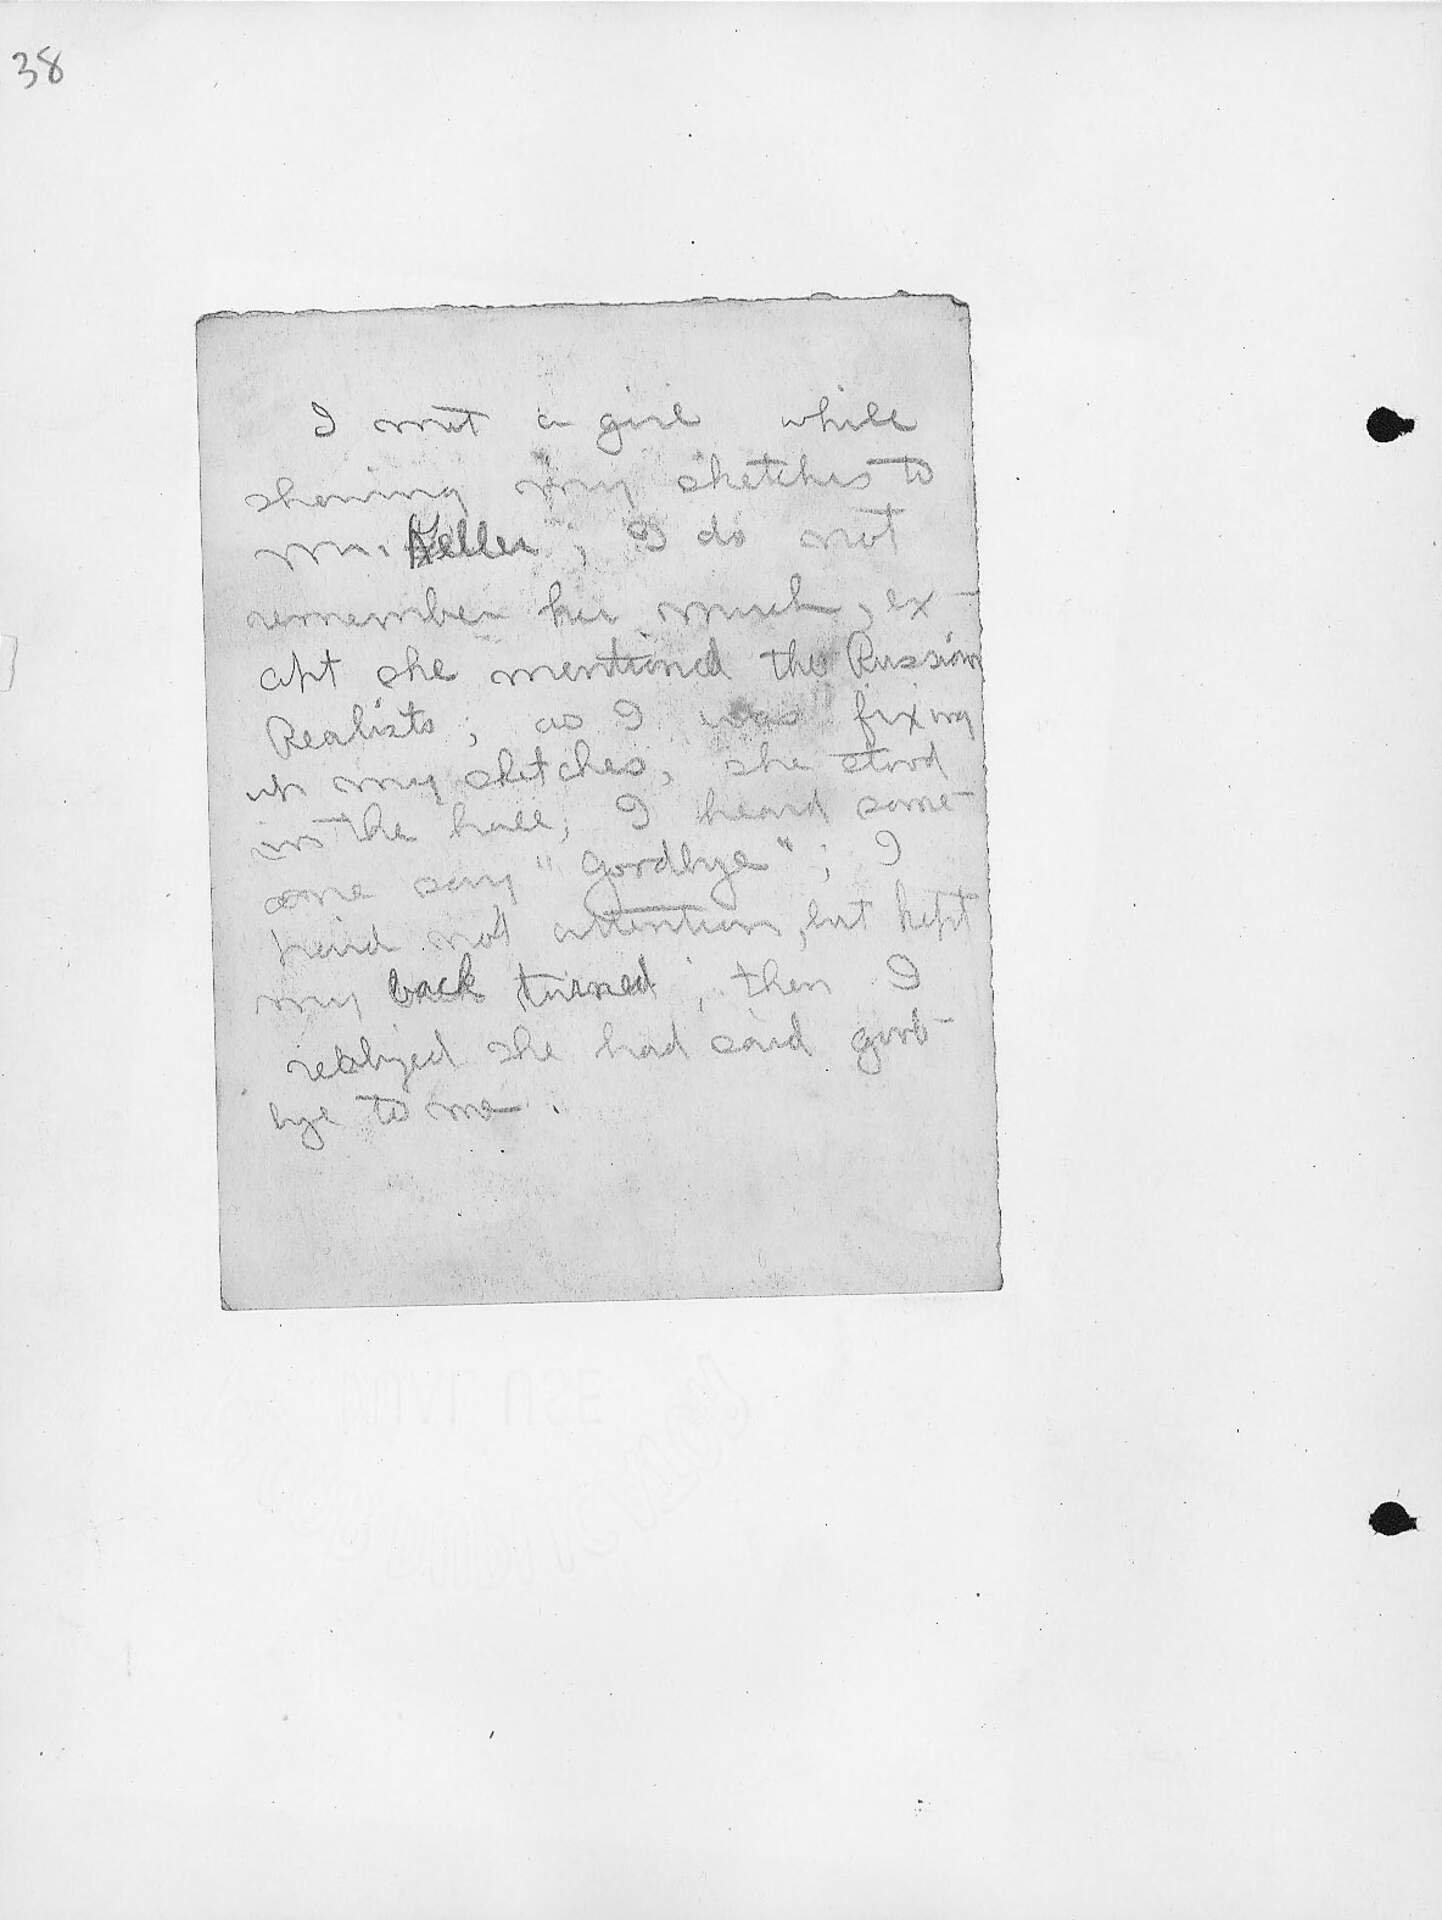 38
I met a girl while
showing my sketches to
Mr. Keller; I do not
remember her much, ex-
cept she mentioned the Russian
Realists; as I was fixing
up my sketches, she stood
in the hall; I heard some-
one say "Goodbye"; I
paid not attention, but kept
my back turned; then I
realized she had said good-
bye to me.